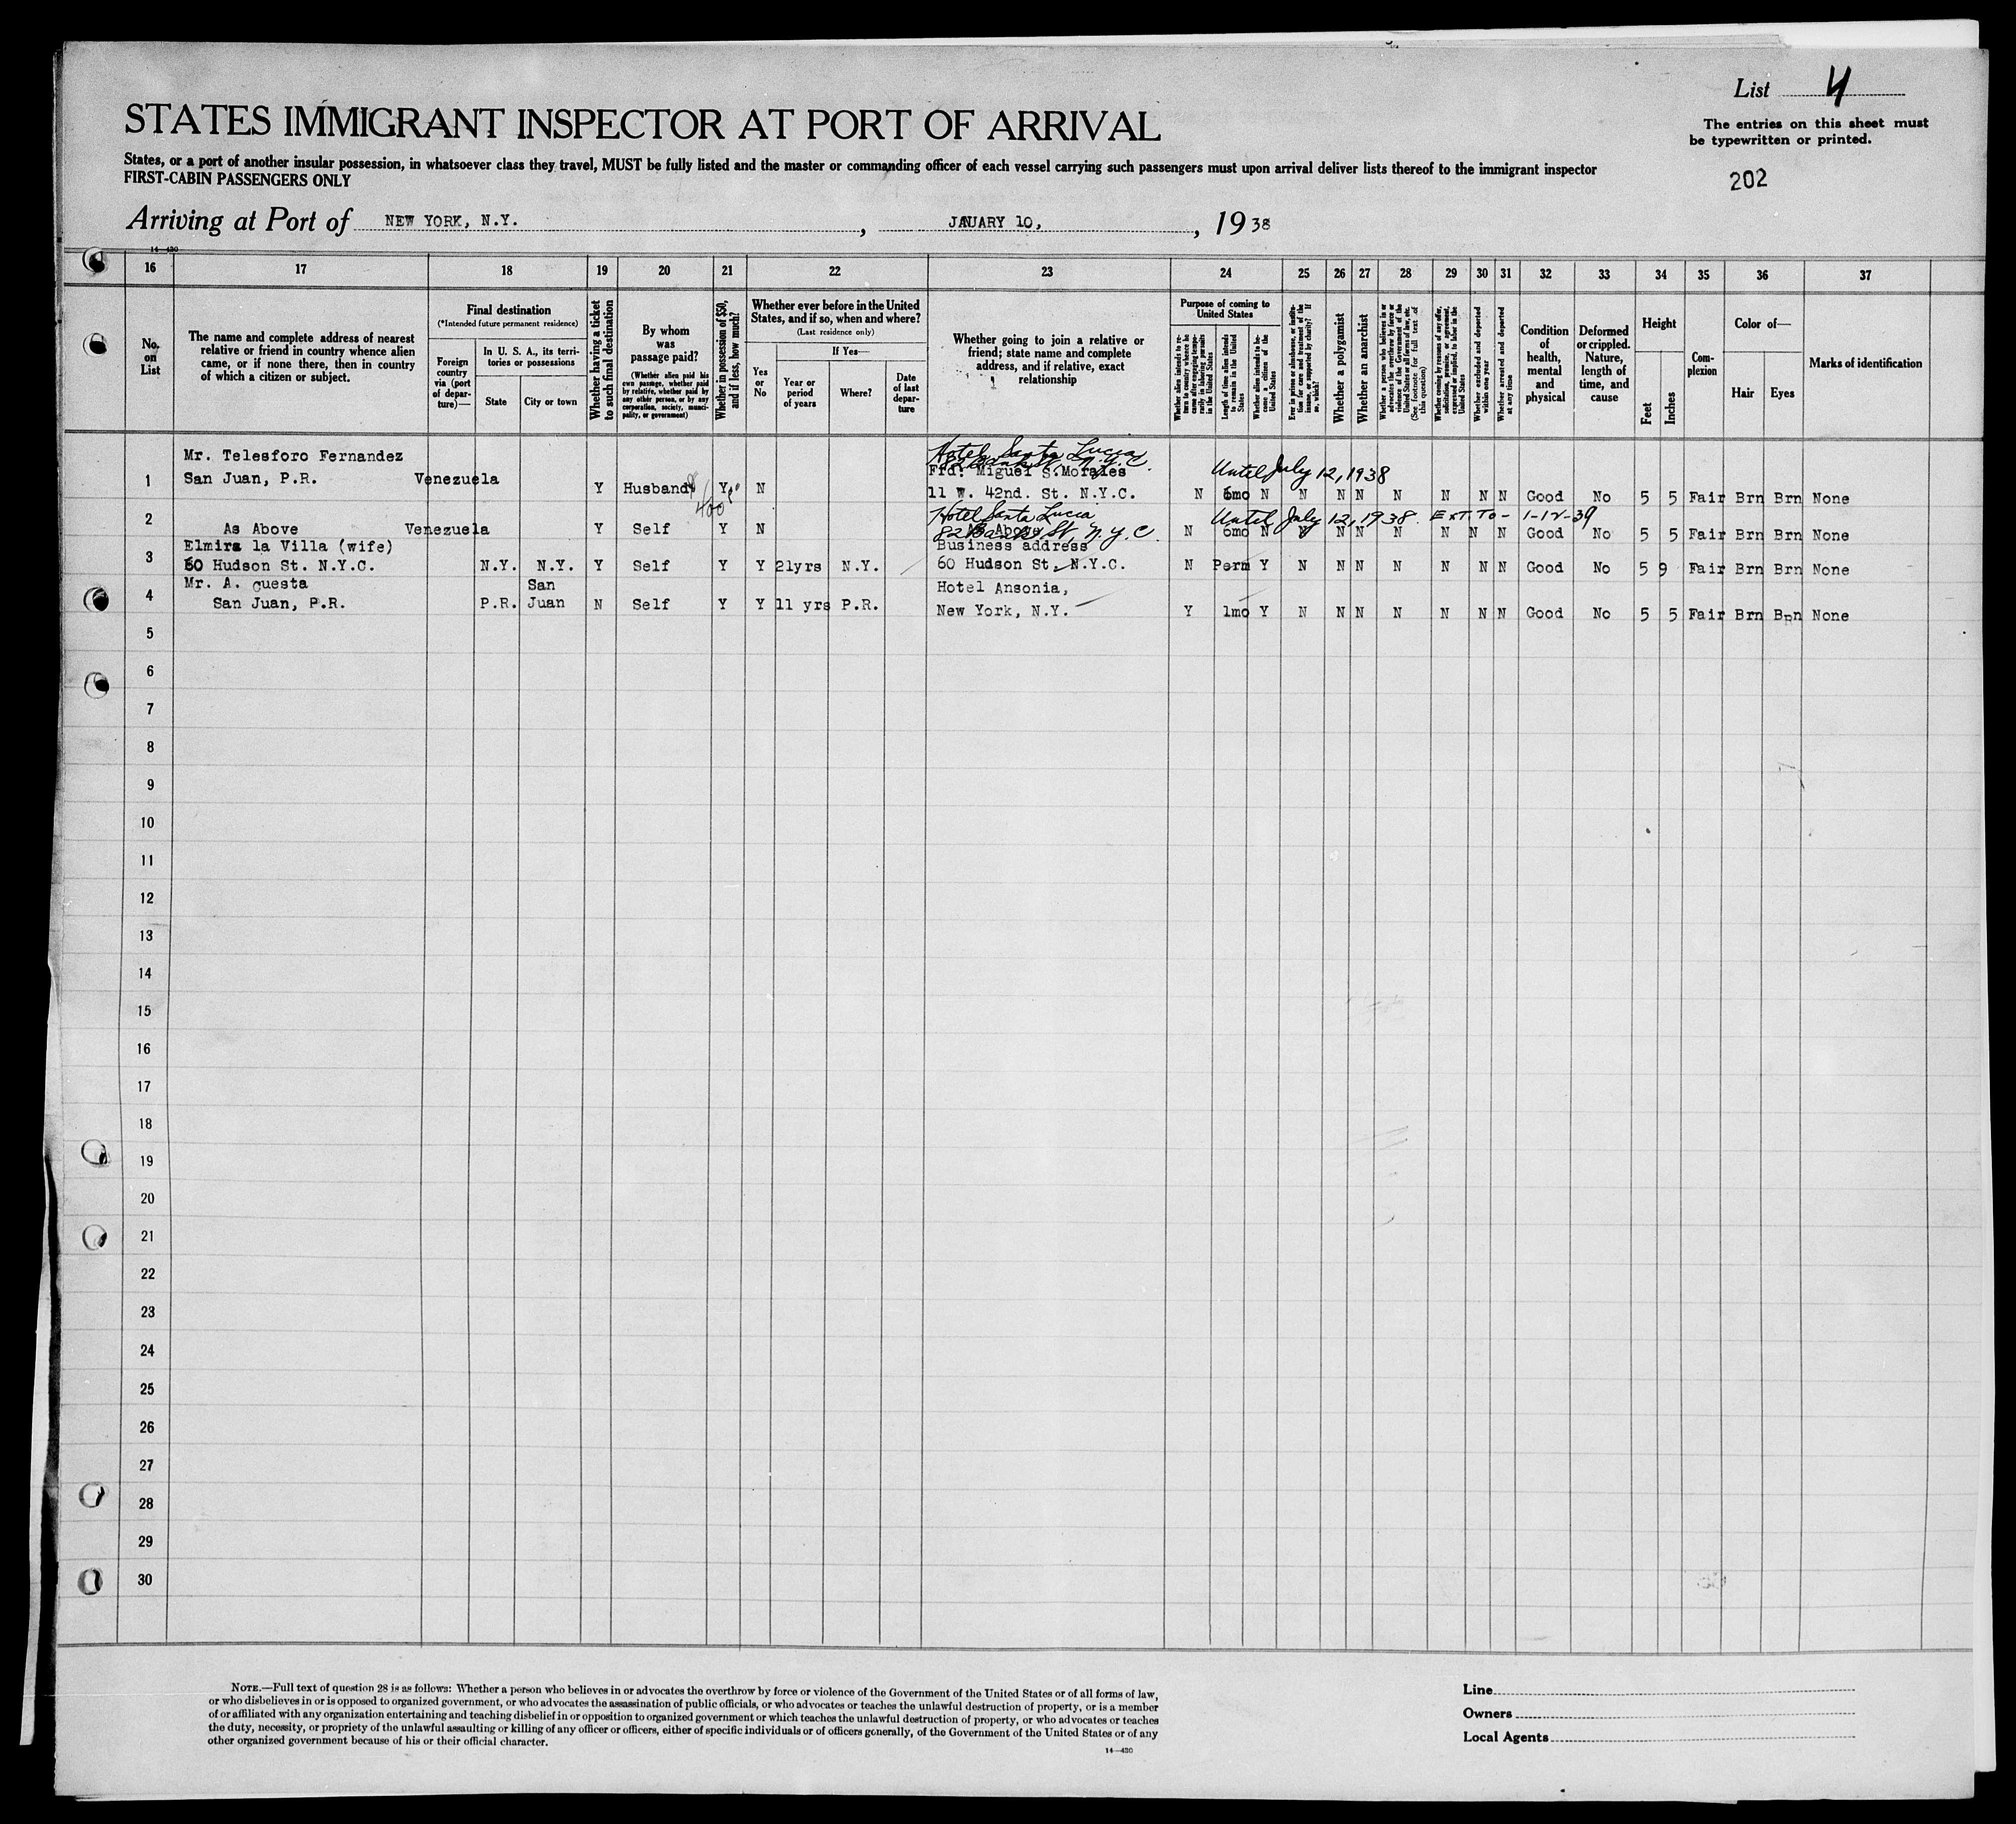 List 4
STATES IMMIGRANT INSPECTOR AT PORT OF ARRIVAL
The entries on this sheet must
be typewritten or printed.
States, or a port of another insular possession, in whatsoever class they travel, MUST be fully listed and the master or commanding officer of each vessel carrying such passengers must upon arrival deliver lists thereof to the immigrant inspector
FIRST-CABIN PASSENGERS ONLY
202
Arriving at Port of NEW YORK, N.Y. , JANUARY 10, , 1938
14—430
16 17 18 19 20 21 22 23 24 25 26 27 28 29 30 31 32 33 34 35 36 37
No. on List
The name and complete address of nearest relative or friend in country whence alien came, or if none there, then in country of which a citizen or subject.
Final destination
(*Intended future permanent residence)
Foreign country via (port of departure)—
In U. S. A., its territories or possessions
State
City or town
Whether having a ticket to such final destination
By whom was passage paid?
(Whether alien paid his own passage, whether paid by relative, whether paid by any other person, or by any corporation, society, municipality, or government)
Whether in possession of $50, and if less, how much?
Whether ever before in the United States, and if so, when and where?
(Last residence only)
Yes or No
If Yes—
Year or period of years
Where?
Date of last departure
Whether going to join a relative or friend; state name and complete address, and if relative, exact relationship
Purpose of coming to United States
Whether alien intends to return to country whence he came after engaging temporarily in laboring pursuits in the United States
Length of time alien intends to remain in the United States
Whether alien intends to become a citizen of the United States
Ever in prison or almshouse, or institution for care and treatment of the insane, or supported by charity? If so, which?
Whether a polygamist
Whether an anarchist
Whether a person who believes in or advocates the overthrow by force or violence of the Government of the United States or all forms of law, etc. (See footnote for full text of this question)
Whether coming by reasons of any offer, solicitation, promise, or agreement, expressed or implied, to labor in the United States
Whether excluded and deported within one year
Whether arrested and deported at any time
Condition of health, mental and physical
Deformed or crippled. Nature, length of time, and cause
Height
Feet
Inches
Complexion
Color of—
Hair
Eyes
Marks of identification
Mr. Telesforo Fernandez Hotel Santa Lucia
1 San Juan, P.R. Venezuela Frd: Miguel S.Morales Until July 12, 1938
Y Husband Y N 11 W. 42nd. St. N.Y.C. N 6mo N N N N N N N N Good No 5 5 Fair Brn Brn None
400
2 Hotel Santa Lucia Until July 12, 1938. Ext. To - 1-12-39
As Above Venezuela Y Self Y N As Above 82 Bank St, N.Y.C. N 6mo N N N N N N N N Good No 5 5 Fair Brn Brn None
3 Elmira la Villa (wife) Business address
60 Hudson St. N.Y.C. N.Y. N.Y. Y Self Y Y 21yrs N.Y. 60 Hudson St. N.Y.C. N Perm Y N N N N N N N Good No 5 9 Fair Brn Brn None
4 Mr. A. Cuesta San Hotel Ansonia,
San Juan, P.R. P.R. Juan N Self Y Y 11 yrs P.R. New York, N.Y. Y 1mo Y N N N N N N N Good No 5 5 Fair Brn Brn None
5
6
7
8
9
10
11
12
13
14
15
16
17
18
19
20
21
22
23
24
25
26
27
28
29
30
NOTE.—Full text of question 28 is as follows: Whether a person who believes in or advocates the overthrow by force or violence of the Government of the United States or of all forms of law,
or who disbelieves in or is opposed to organized government, or who advocates the assassination of public officials, or who advocates or teaches the unlawful destruction of property, or is a member
of or affiliated with any organization entertaining and teaching disbelief in or opposition to organized government or which teaches the unlawful destruction of property, or who advocates or teaches
the duty, necessity, or propriety of the unlawful assaulting or killing of any officer or officers, either of specific individuals or of officers generally, of the Government of the United States or of any
other organized government because of his or their official character.
14—430
Line
Owners
Local Agents